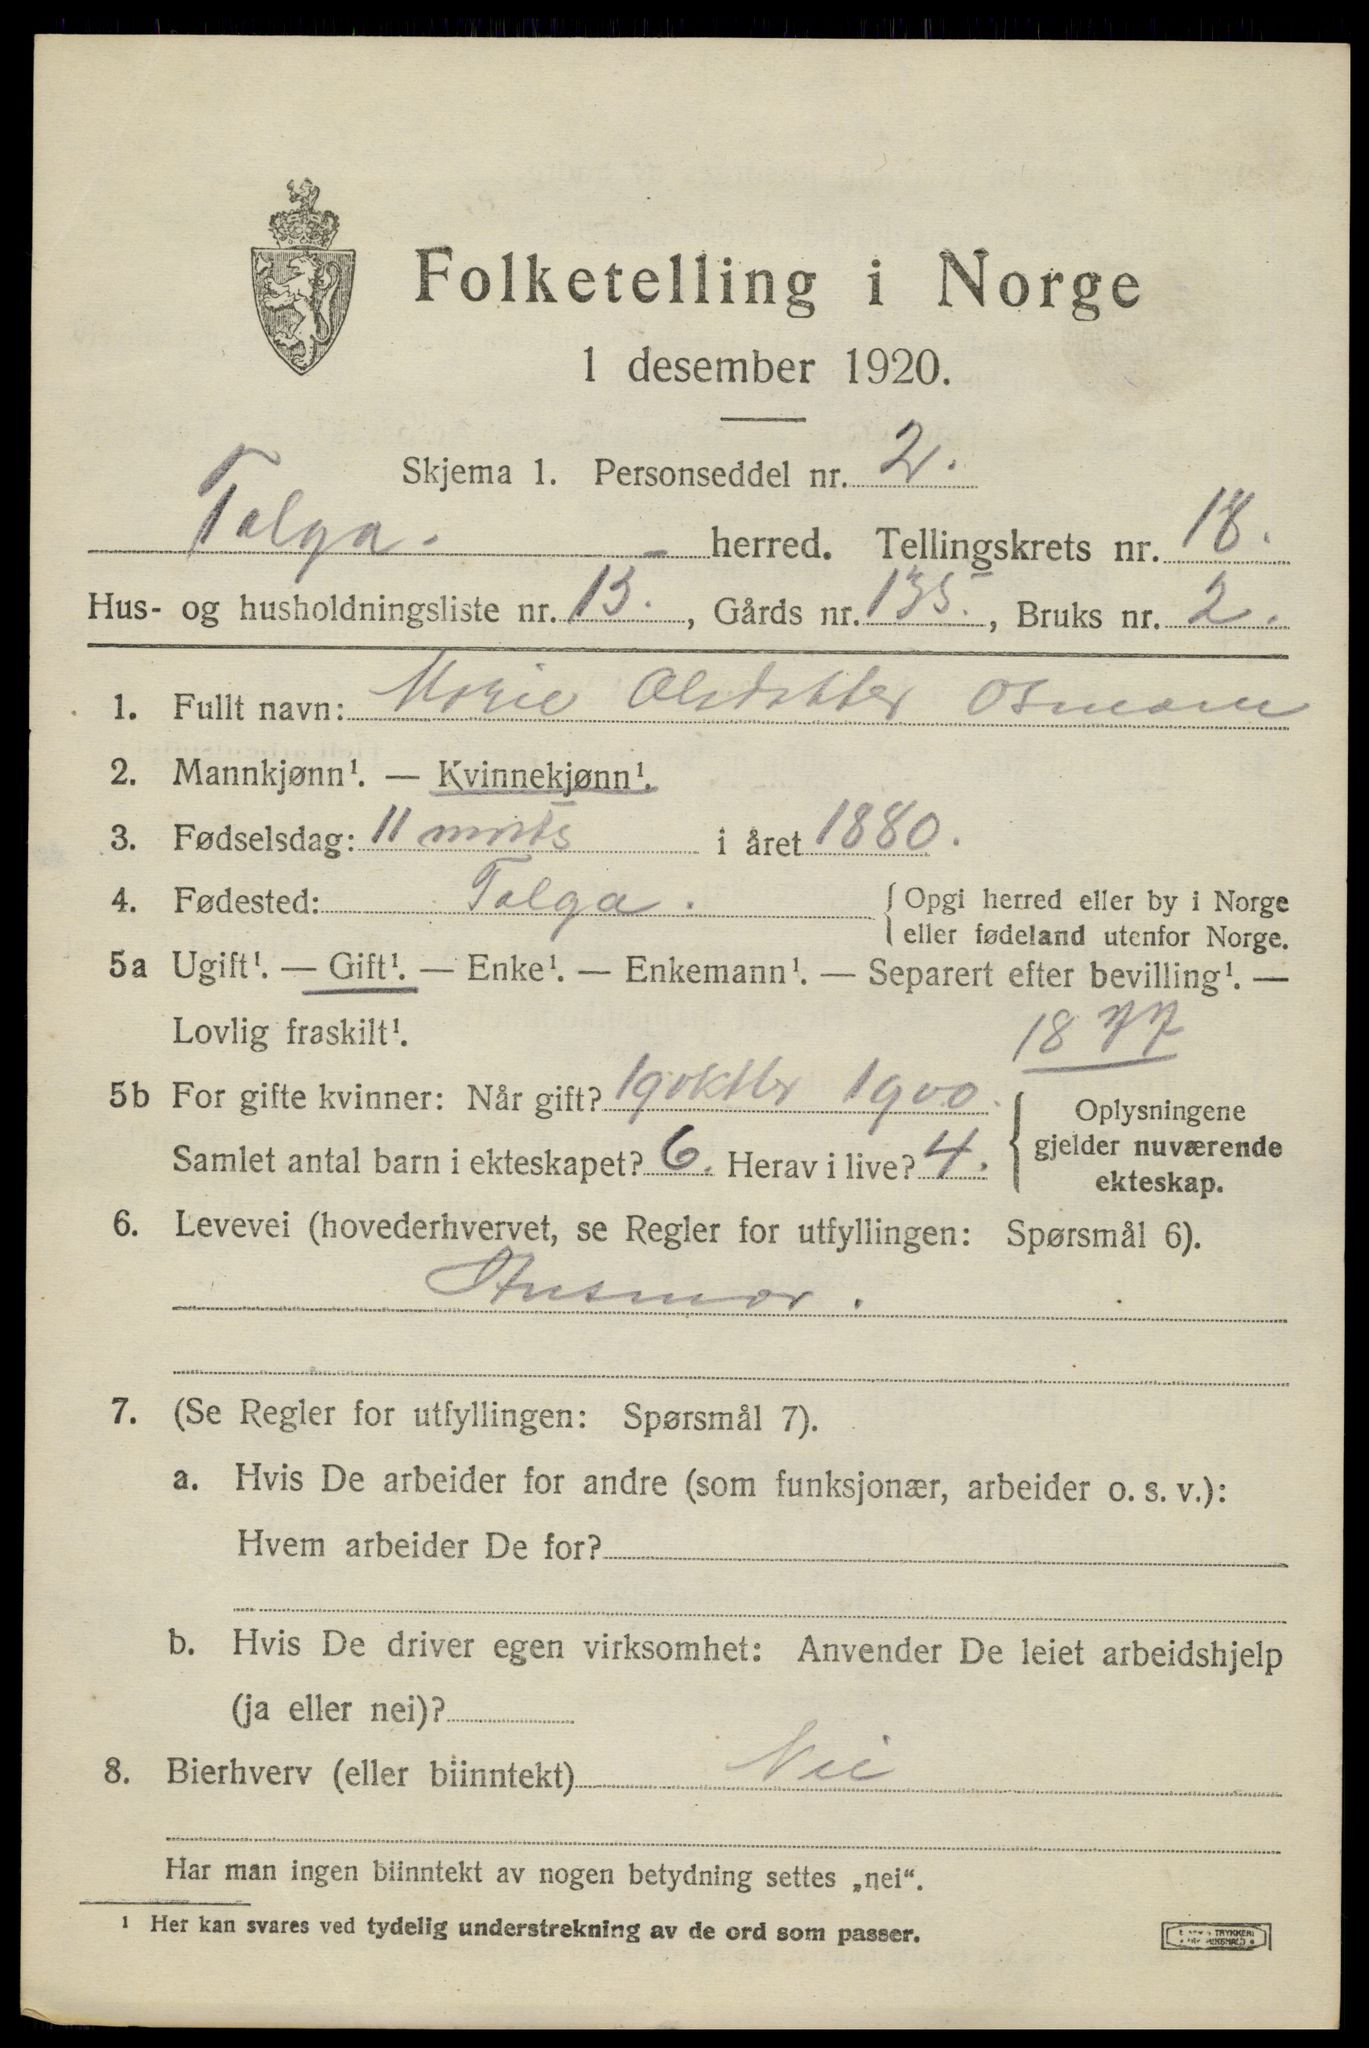 Folketelling i Norge
1 desember 1920.
Skjema 1. Personseddel nr. 2.
Tolga. - herred. Tellingskrets nr. 18.
Hus- og husholdningsliste nr. 13. , Gårds nr. 135. , Bruks nr. 2.
1. Fullt navn: Marie Olsdatter Osmoen
2. Mannkjønn¹. — Kvinnekjønn¹.
3. Fødselsdag: 11 i året 1880.
4. Fødested: Tolga. { Opgi herred eller by i Norge
eller fødeland utenfor Norge.
5a Ugift¹. — Gift¹. — Enke¹. — Enkemann¹. — Separert efter bevilling¹. —
Lovlig fraskilt¹.
18 77
5b For gifte kvinner: Når gift? 19 oktbr 1900.
Samlet antal barn i ekteskapet? 6. Herav i live? 4.
{ Oplysningene
gjelder nuværende
ekteskap.
6. Levevei (hovederhvervet, se Regler for utfyllingen: Spørsmål 6).
Husmor.
7. (Se Regler for utfyllingen: Spørsmål 7).
a. Hvis De arbeider for andre (som funksjonær, arbeider o. s. v.):
Hvem arbeider De for?
b. Hvis De driver egen virksomhet: Anvender De leiet arbeidshjelp
(ja eller nei)?
8. Bierhverv (eller biinntekt) Nei
Har man ingen biinntekt av nogen betydning settes „nei“.
¹ Her kan svares ved tydelig understrekning av de ord som passer.